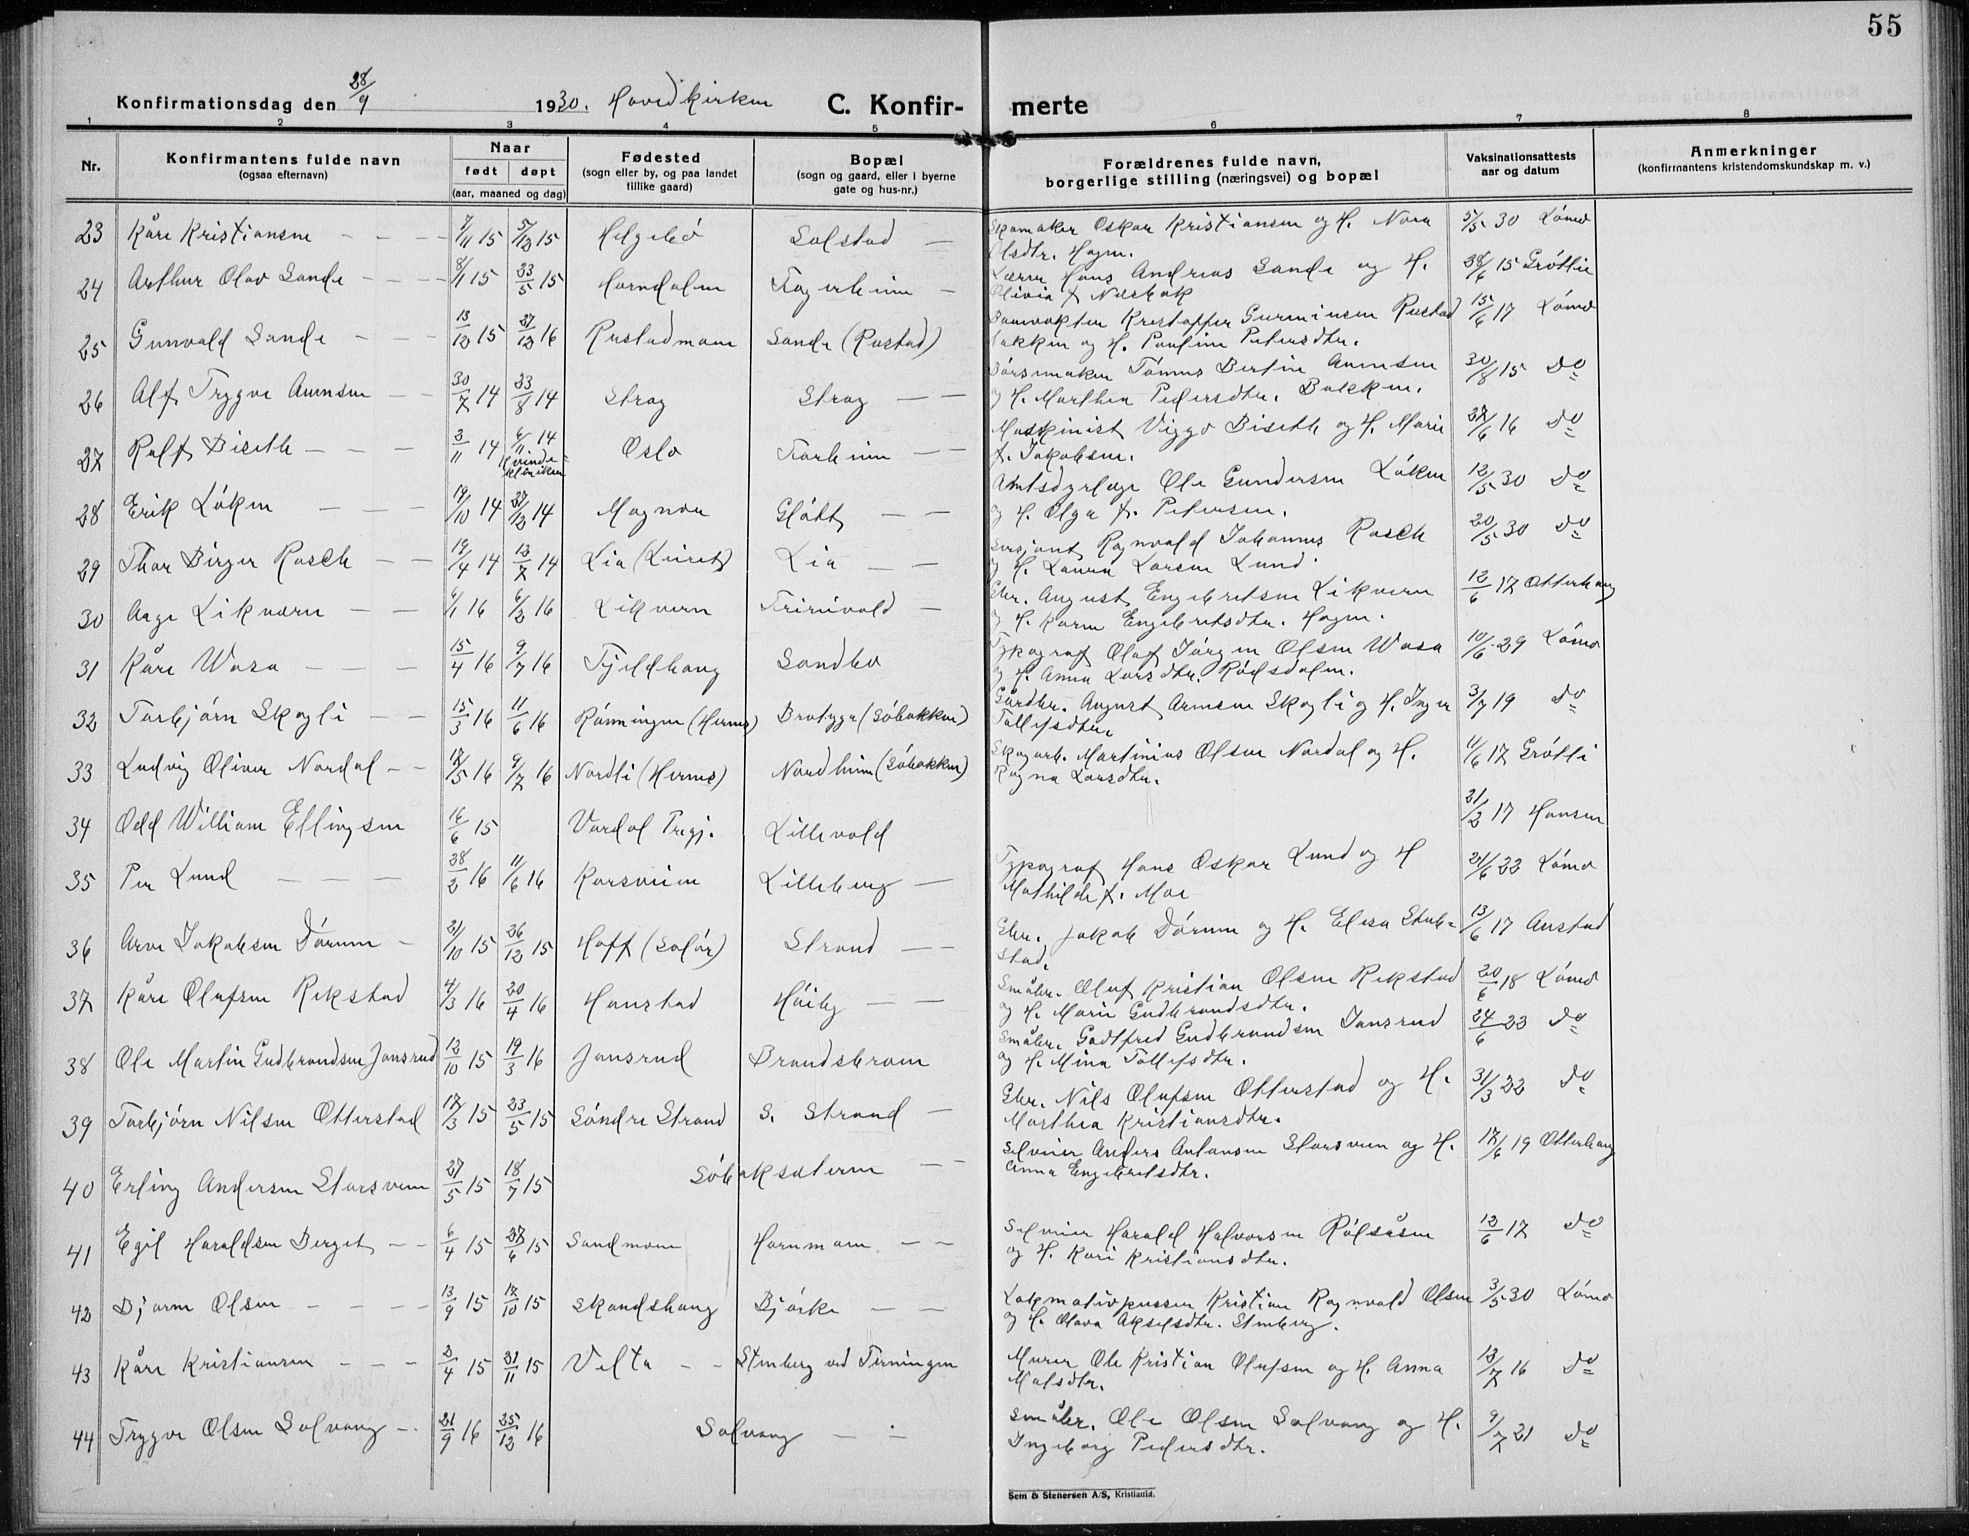 55
Konfirmationsdag den 28/9 1930. Hovedkirken C. Konfir- merte
1 2 3 4 5 6 7 8
Nr. Konfirmantens fulde navn (ogsaa efternavn) Naar født døpt (aar, maaned og dag) Fødested (sogn eller by, og paa landet tillike gaard) Bopæl (sogn og gaard, eller i byerne gate og hus-nr.) Forældrenes fulde navn, borgerlige stilling (næringsvei) og bopæl Vaksinationsattests aar og datum Anmerkninger (konfirmantens kristendomskundskap m. v.)
23 Kåre Kristiansen 7/11 15 5/12 15 Helgebö Solstad Skomaker Oskar Kristiansen og H. Nora 5/5 30 Lömo
Olsdtr. Hagen.
24 Arthur Olav Sande 8/1 15 23/5 15 Horndalen Fagerheim Lærer Hans Andreas Sande og H. 28/6 15 Gröttli
Olivia f.
25 Gunvald Sande 13/12 15 27/12 16 Rustadmoen Sande (Rustad) Banevokter Kristoffer Rustad 15/6 17 Lömo
bakken og H. Pauline Petersdtr.
26 Alf Trygve Arnesen 30/7 14 23/8 14 Strag Strag Börsemaker Bertin Arnesen 30/8 15 do
og H. Marthea Pedersdtr. Bakken.
27 Ralf Biseth 3/11 14 6/11 14 Kvinde-klinikken Oslo Torheim Maskinist Viggo Biseth og H. Marie 27/6 16 do
f. Jakobsen.
28 Erik Löken 19/10 14 27/12 14 Magnor Glött Amtsdyrlæge Ole Gundersen Löken 12/5 30 do
og H. Olga f. Petersen.
29 Thor Birger Rasch 19/4 14 12/7 14 Lia Lia Sersjant Ragnvald Johannes Rasch 20/5 30 do
og H. Laura Larsen Lund
30 Aage Likvern 6/1 16 6/2 16 Likvern Gbr. August Engebretsen Likvern 12/6 17 Otterhaug
og H. Karen Engebretsdtr. Hagen.
31 Kåre Wasa 15/4 16 9/7 16 Fjeldhaug Sandbo Typograf Olaf Jörgen Olsen Wasa 10/6 29 Lömo
og H. Anna Larsdtr. Rödsdalen.
32 Torbjörn Skogli 15/3 16 11/6 16 Rönningen (Hernes) Bratyge (Söbakken) Gårdbr. August Arnesen Skogli og H. Inger 3/7 19 do
Tollefsdtr.
33 Ludvig Oliver Nordal 17/5 16 9/7 16 Nordli (Hernes) Nordheim (Söbakken) Skogarb. Martinius Olsen Nordal og H. 11/6 17 Gröttli
Ragna Larsdtr.
34 Odd William Ellingsen 16/6 15 Vardal Prgj. Lillevold 21/2 17 Hansen
35 Per Lund 28/2 16 11/6 16 Korsveien Lilleberg Typograf Hans Oskar Lund og H 21/6 22 Lömo
Mathilde f. Moe
36 Arve Jakobsen Dörum 31/10 15 26/12 15 Hoff (Solör) Strand Gbr. Jakob Dörum og H. Elisa Stub- 13/6 17 Austad
stad.
37 Kåre Olufsen Rekstad 4/3 16 20/4 16 Hanstad Höiby Småbr. Oluf Kristian Olsen Rekstad 20/6 18 Lömo
og H. Marie Gudbrandsdtr.
38 Ole Martin Gudbrandsen Jonsrud 12/10 15 19/3 16 Jonsrud Brandsbroen Småbr. Godtfred Gudbrandsen Jonsrud 24/6 23 do
og H. Mina Tollefsdtr.
39 Torbjörn Nilsen Otterstad 17/3 15 23/5 15 Söndre Strand S. Strand Gbr. Nils Olufsen Otterstad og H. 31/3 22 do
Marthea Kristiansdtr.
40 Erling Andersen Storsveen 27/5 15 18/7 15 Söbaksæteren Selveier Anders Antonsen Storsveen og H. 17/6 19 Otterhaug
Anna Engebretsdtr.
41 Egil Haraldsen Berget 6/4 15 27/6 15 Sandmoen Hornmoen Selveier Harald Halvorsen Rölsåsen 12/6 17 do
og H. Kari Kristiansdtr.
42 Bjarne Olsen 13/9 15 17/10 15 Skandshaug Bjørke Lokomotivpusser Kristian Ragnvald Olsen 3/5 30 Lömo
og H. Olava Akselsdtr. Stenberg.
43 Kåre Kristiansen 2/4 15 21/11 15 Velta Stenberg ved Terningen Murer Ole Kristian Olufsen og H. Anna 13/7 16 do
Matsdtr.
44 Trygve Olsen Solvang 21/9 16 25/12 16 Solvang Småbr. Ole Olsen Solvang og H. 9/7 21 do
Ingeborg Pedersdtr.
Sem & Stenersen A/S, Kristiania.